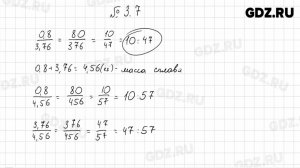 GDZ.RU
№ 3.7
0,8/3,76 = 80/376 = 10/47 = 10:47
0,8+3,76=4,56(кг)-масса сплава
0,8/4,56 = 80/456 = 10/57 = 10:57
3,76/4,56 = 376/456 = 47/57 = 47:57
GDZ.RU